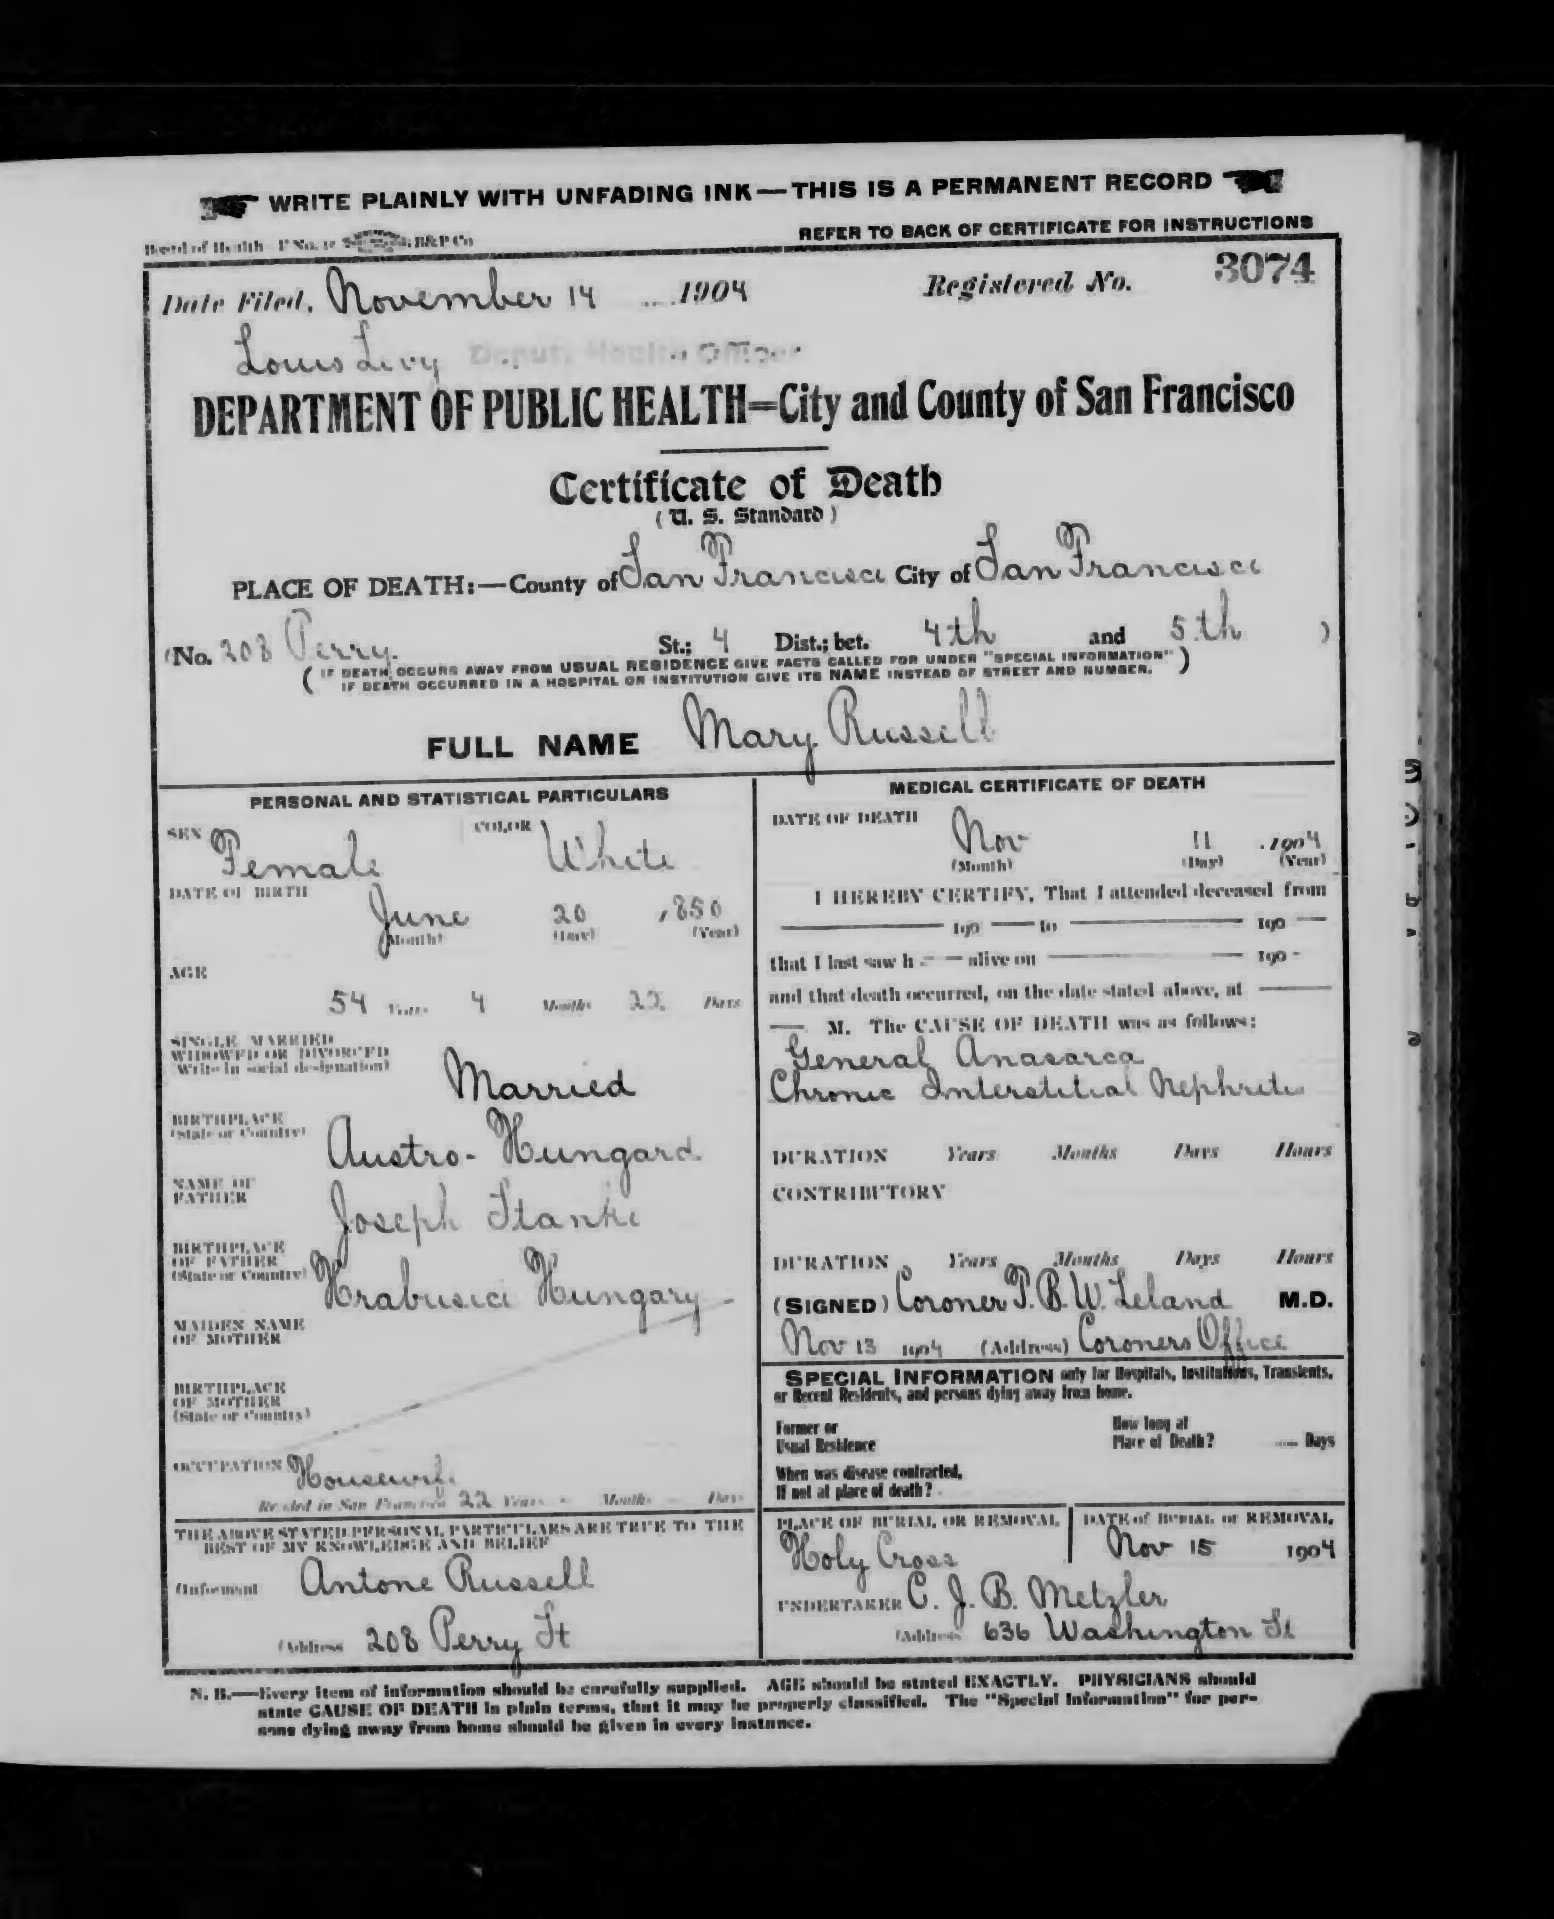 WRITE PLAINLY WITH UNFADING INK—THIS IS A PERMANENT RECORD
Board of Health—F No. B&P Co
REFER TO BACK OF CERTIFICATE FOR INSTRUCTIONS
Date Filed, November 14 1904 Registered No. 3074
Louis Levy Deputy Health Officer
DEPARTMENT OF PUBLIC HEALTH=City and County of San Francisco
Certificate of Death
(U. S. Standard)
PLACE OF DEATH:—County of San Francisco City of San Francisco
(No. 208 Perry St.; 4 Dist.; bet. 4th and 5th )
( IF DEATH OCCURS AWAY FROM USUAL RESIDENCE GIVE FACTS CALLED FOR UNDER "SPECIAL INFORMATION" )
IF DEATH OCCURRED IN A HOSPITAL OR INSTITUTION GIVE ITS NAME INSTEAD OF STREET AND NUMBER.
FULL NAME Mary Russell
PERSONAL AND STATISTICAL PARTICULARS
SEX Female COLOR White
DATE OF BIRTH
June 20 1850
(Month) (Day) (Year)
AGE
54 Years 4 Months 22 Days
SINGLE MARRIED
WIDOWED OR DIVORCED
(Write in social designation)
Married
BIRTHPLACE
(State or Country)
Austro-Hungard
NAME OF
FATHER
Joseph Stanke
BIRTHPLACE
OF FATHER
(State or Country)
Hrabusici Hungary
MAIDEN NAME
OF MOTHER
BIRTHPLACE
OF MOTHER
(State or Country)
OCCUPATION Housewife
Resided in San Francisco 22 Years - Months - Days
THE ABOVE STATED PERSONAL PARTICULARS ARE TRUE TO THE
BEST OF MY KNOWLEDGE AND BELIEF
(Informant Antone Russell
(Address 208 Perry St
MEDICAL CERTIFICATE OF DEATH
DATE OF DEATH
Nov 11 1904
(Month) (Day) (Year)
I HEREBY CERTIFY, That I attended deceased from
190 to 190
that I last saw h alive on 190
and that death occurred, on the date stated above, at
M. The CAUSE OF DEATH was as follows:
General Anasarca
Chronic Interstitial Nephritis
DURATION Years Months Days Hours
CONTRIBUTORY
DURATION Years Months Days Hours
(SIGNED) Coroner T. B. W. Leland M.D.
Nov 13 1904 (Address) Coroners Office
SPECIAL INFORMATION only for Hospitals, Institutions, Transients,
or Recent Residents, and persons dying away from home.
Former or
Usual Residence
How long at
Place of Death? Days
When was disease contracted,
If not at place of death?
PLACE OF BURIAL OR REMOVAL
Holy Cross
DATE of BURIAL or REMOVAL
Nov 15 1904
UNDERTAKER C. J. B. Metzler
(Address 636 Washington St
N. B.—Every item of information should be carefully supplied. AGE should be stated EXACTLY. PHYSICIANS should
state CAUSE OF DEATH in plain terms, that it may be properly classified. The "Special Information" for per-
sons dying away from home should be given in every instance.